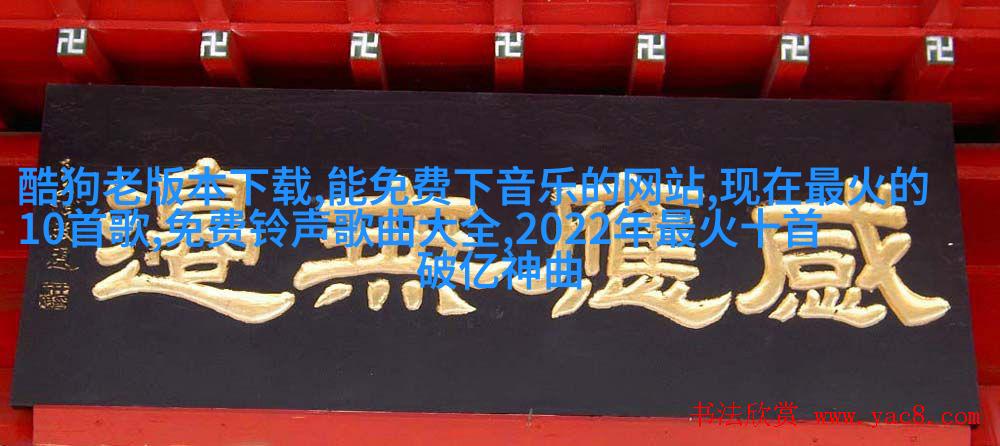 酷狗老版本下载,能免费下音乐的网站,现在最火的
10首歌,免费铃声歌曲大全,2022年最火十首
破亿神曲
感應無邊
书法欣赏 www.yac8.com